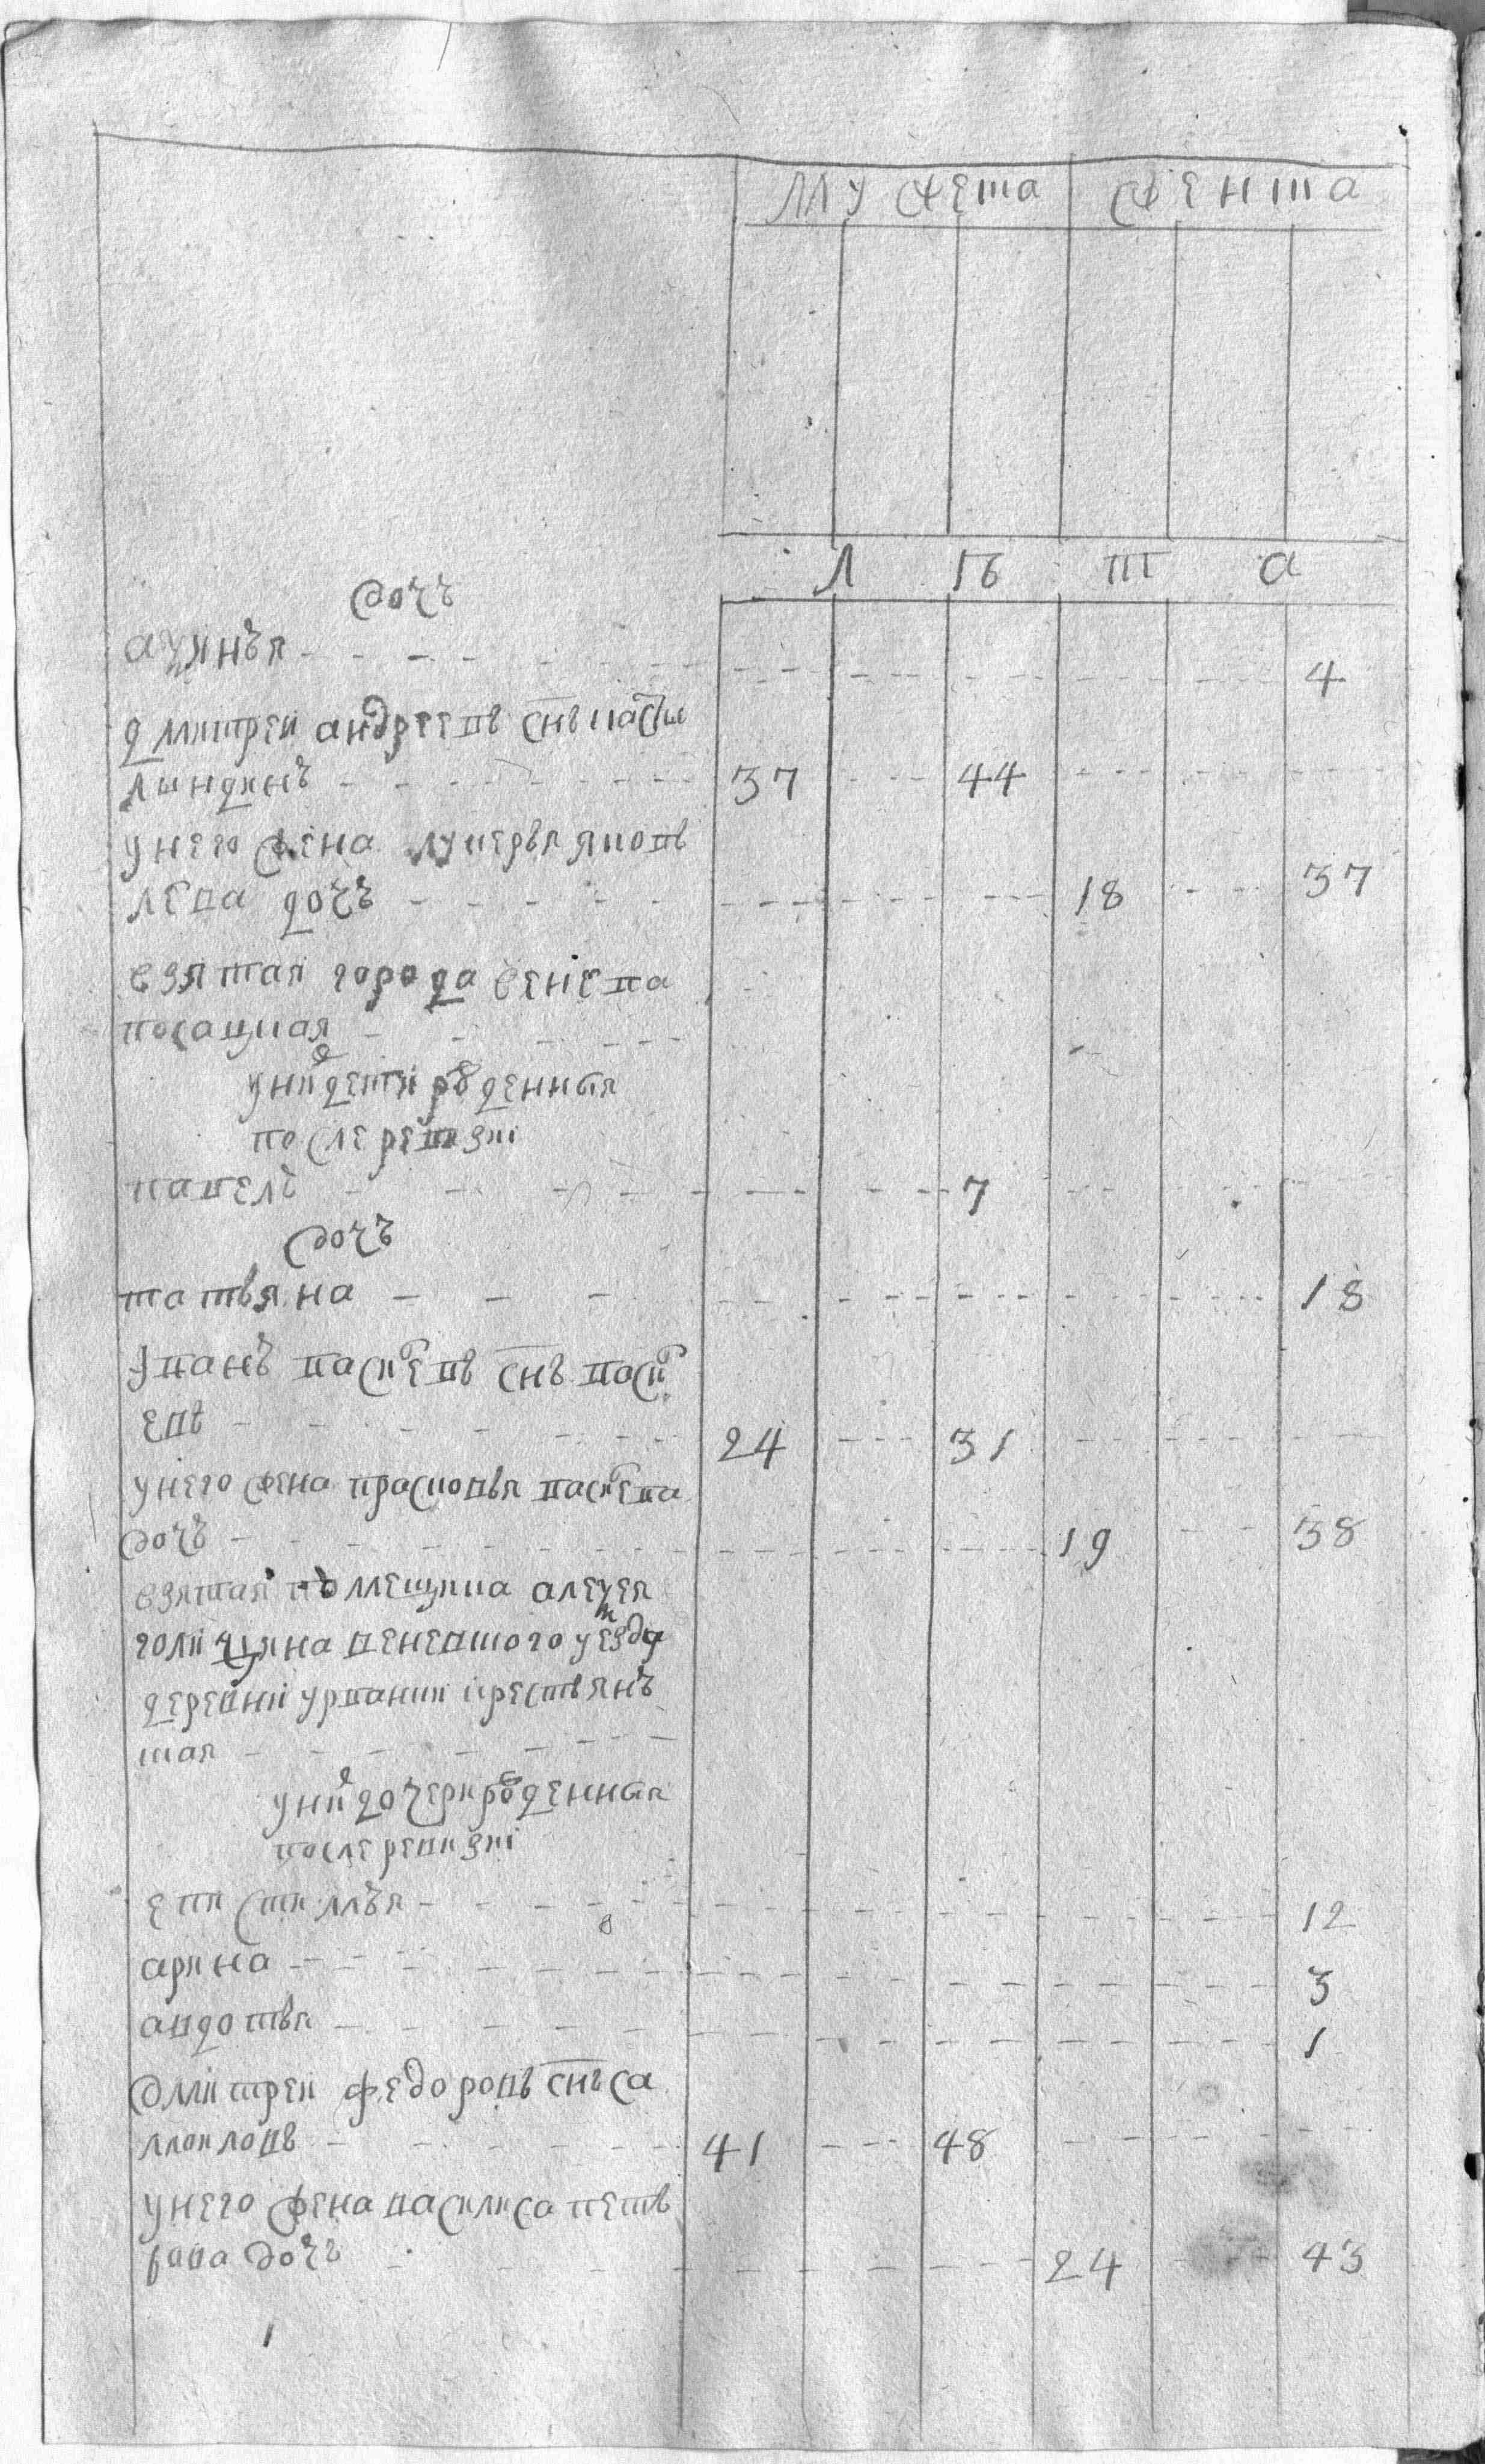 мужеска женска
л ѣ т а
дочь
аѯинья 4
дмитреи андреевъ снъ
лындинъ 37 44
у него жена лукерья яковъ
лева дочь 18 37
взятая города венева
посацкая
у них дети рожденныя
после ревизиі
павелъ 7
дочь
татьяна 18
иванъ васильевъ снъ васил
евъ 24 31
у него жена прасковья васильева
дочь 19 38
взятая помещика алеѯея
голицына веневского уезда
деревни урванки крестьянъ
ская
у них дочери рожденныя
после ревизиі
епистимья 12
арина 3
авдотья 1
дмитреи федоровъ снъ са
моиловъ 41 48
у него жена василиса петв
рова дочь 24 43